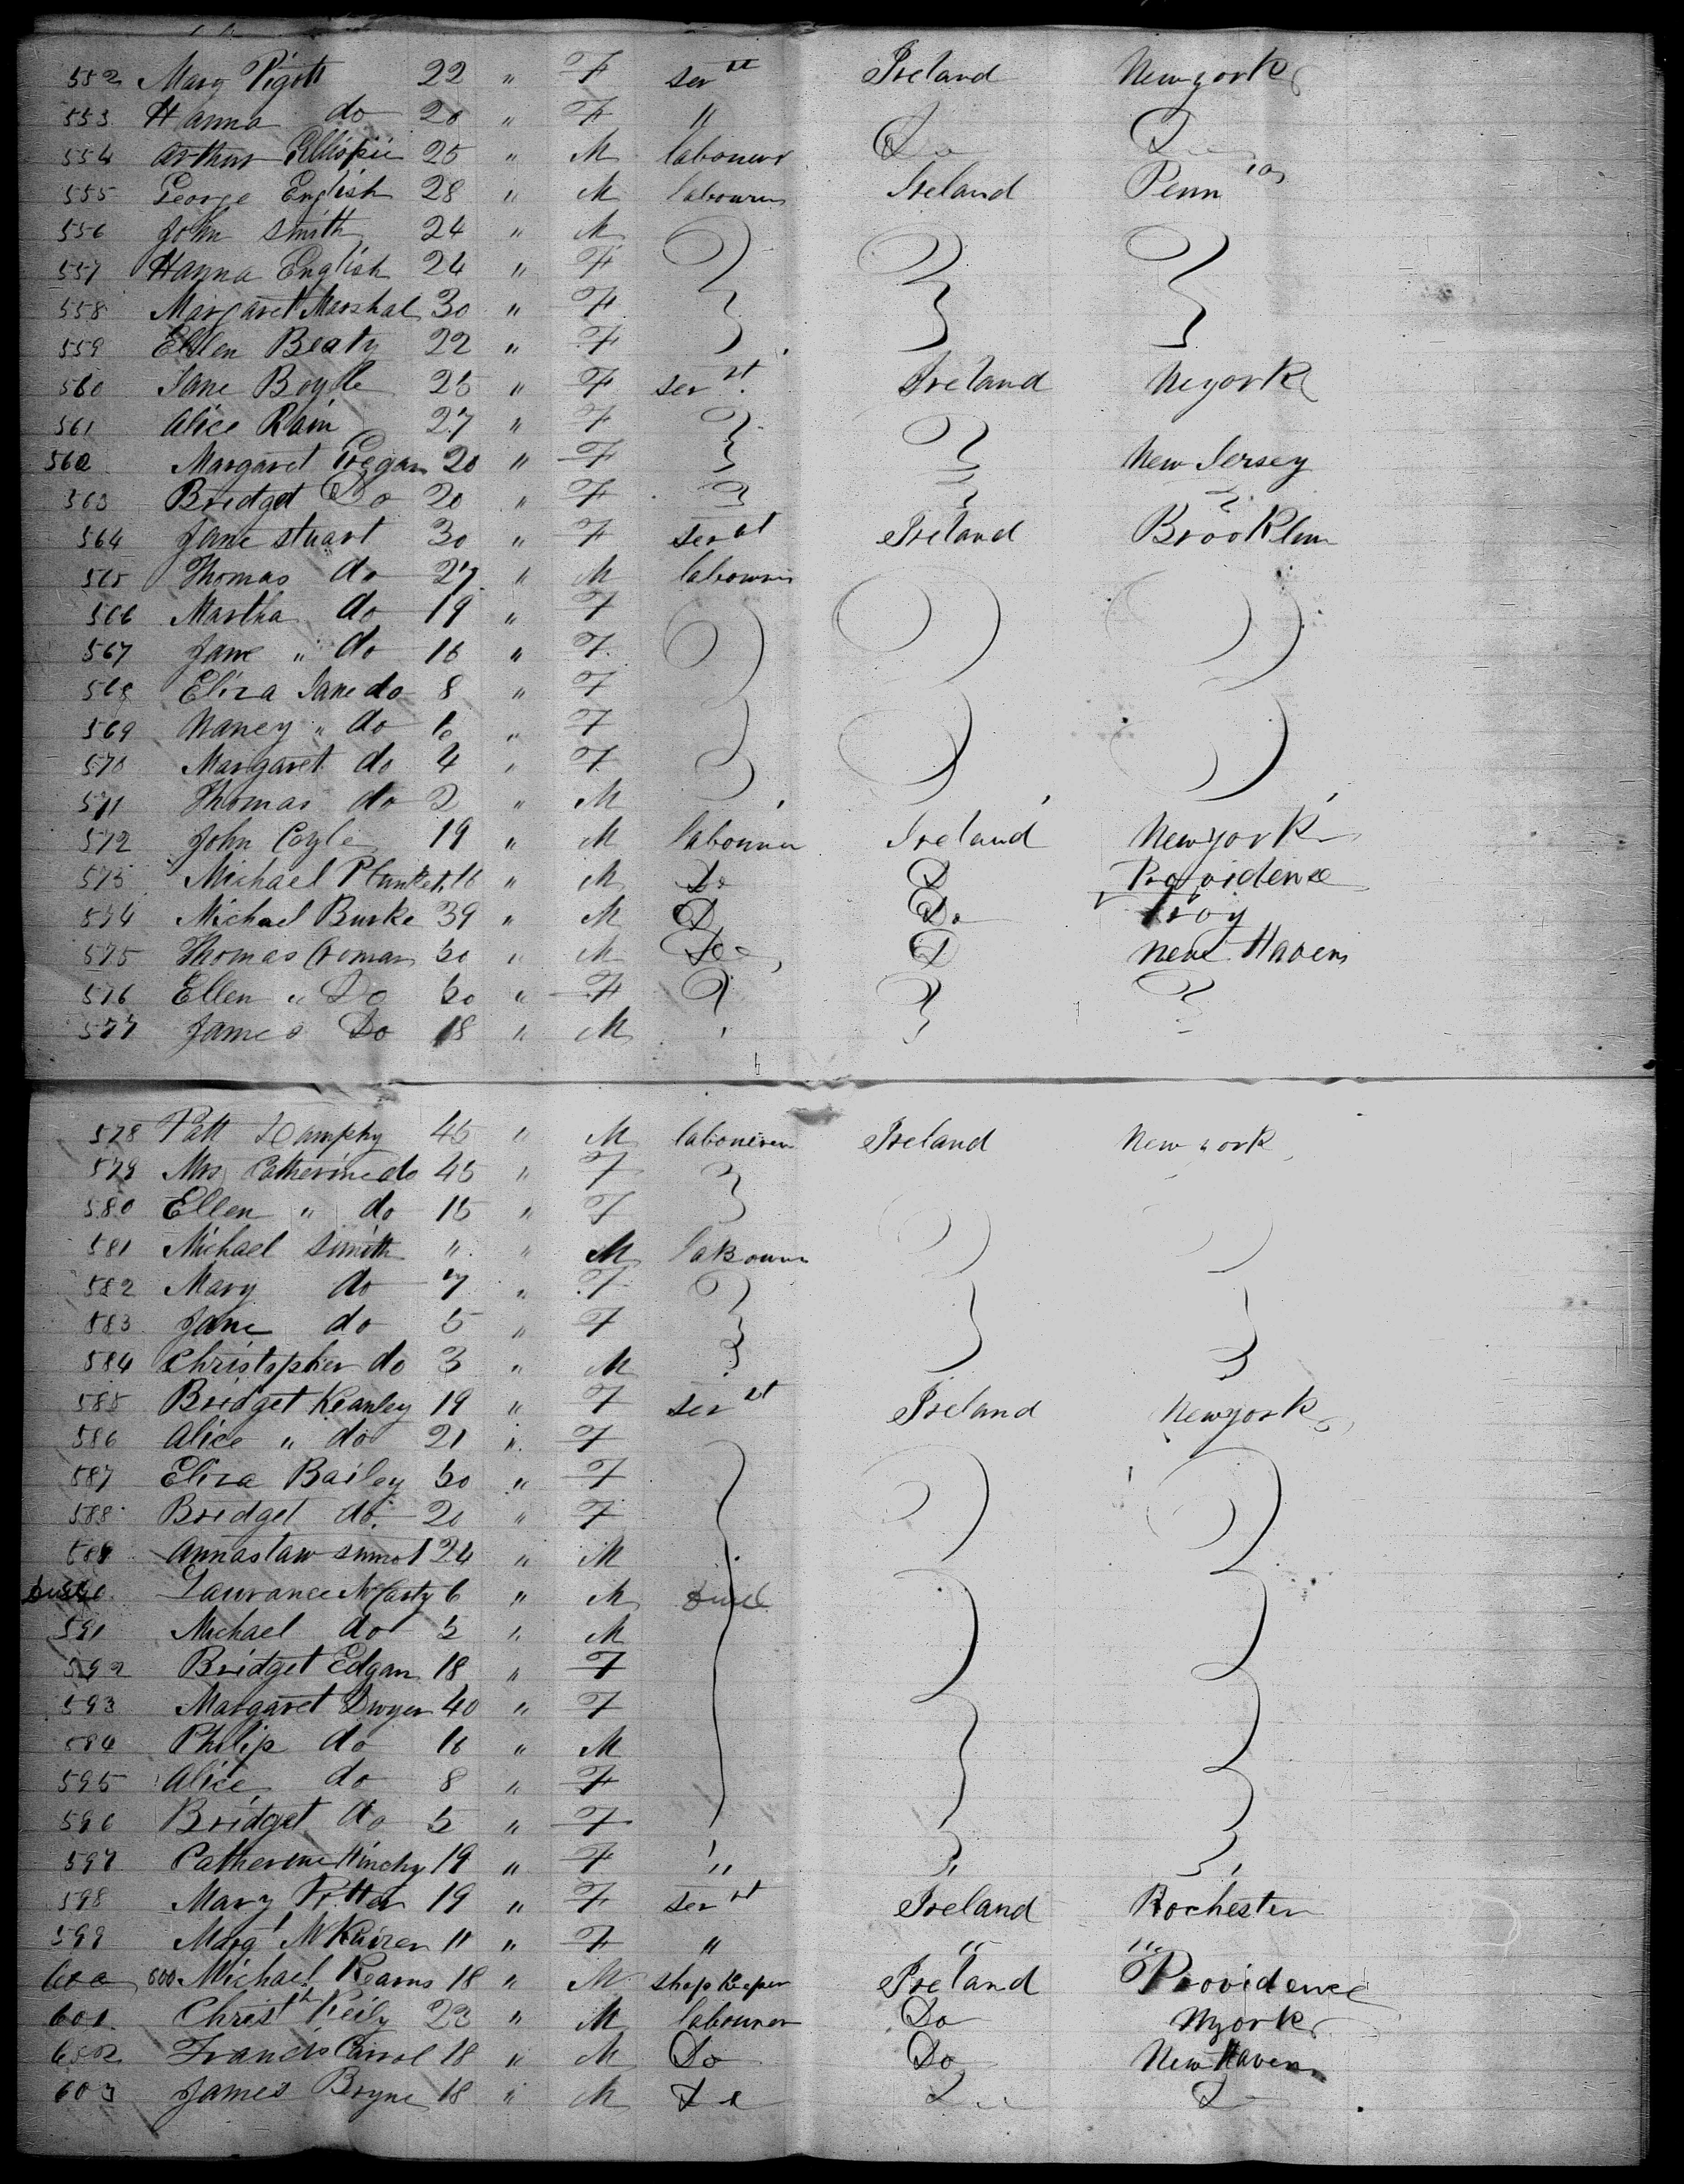 552 Marg Pigott 22 " F ser vt Ireland New york
553 Hanna do 20 " F " Do Do
554 Arthur Gillispie 25 " M labouerr Do Do
555 George English 28 " M labourer Ireland Penn ia
556 John Smith 24 " M
557 Hanna English 24 " F
558 Margaret Marshal 30 " F
559 Ellen Beaty 22 " F
560 Jane Boyle 25 " F ser vt Ireland Neyork
561 Alice Rain 27 " F
562 Margaret Cregan 20 " F New Jersey
563 Bridget Do 20 " F
564 Jane Stuart 30 " F servt Ireland Brooklin
565 Thomas do 27 " M labourer
566 Martha do 19 " F
567 Jane " do 16 " F
568 Eliza Jane do 8 " F
569 Nancy " do 6 " F
570 Margaret do 4 " F
571 Thomas do 2 " M
572 John Coyle 19 " M labourer Ireland New york
573 Michael Plunket 16 " M Do D Providence
574 Michael Burke 39 " M D Do Troy
575 Thomas Croman 50 " M Do D New Haven
576 Ellen " Do 50 " F
577 James Do 18 " M
578 Patt Damphy 45 " M labourer Ireland New york
579 Mrs Catherine do 45 " F
580 Ellen " do 15 " F
581 Michael Smith " " M labourer
582 Mary do 7 " F
583 Jane do 5 " F
584 Christopher do 3 " M
585 Bridget Keanley 19 " F ser vt Ireland New york
586 Alice " do 21 " F
587 Eliza Bailey 50 " F
588 Bridget do 20 " F
589 Annastaw Sinnot 24 " M
590 Laurance McCarty 6 " M
591 Michael do 5 " M
592 Bridget Edgan 18 " F
593 Margaret Dwyer 40 " F
594 Philip do 16 " M
595 Alice do 8 " F
596 Bridget do 5 " F
597 Catherine Hinchy 19 " F "
598 Mary Potter 19 " F ser vt Ireland Rochester
599 Marg t 11 " F " " "
600 600 Michael Kearns 18 " M shop Keeper Ireland Providence
601 Christ Reily 23 " M labourer Do Nyork
602 Francis Carrol 18 " M Do Do New Haven
603 James Bryne 18 " M Do Do D